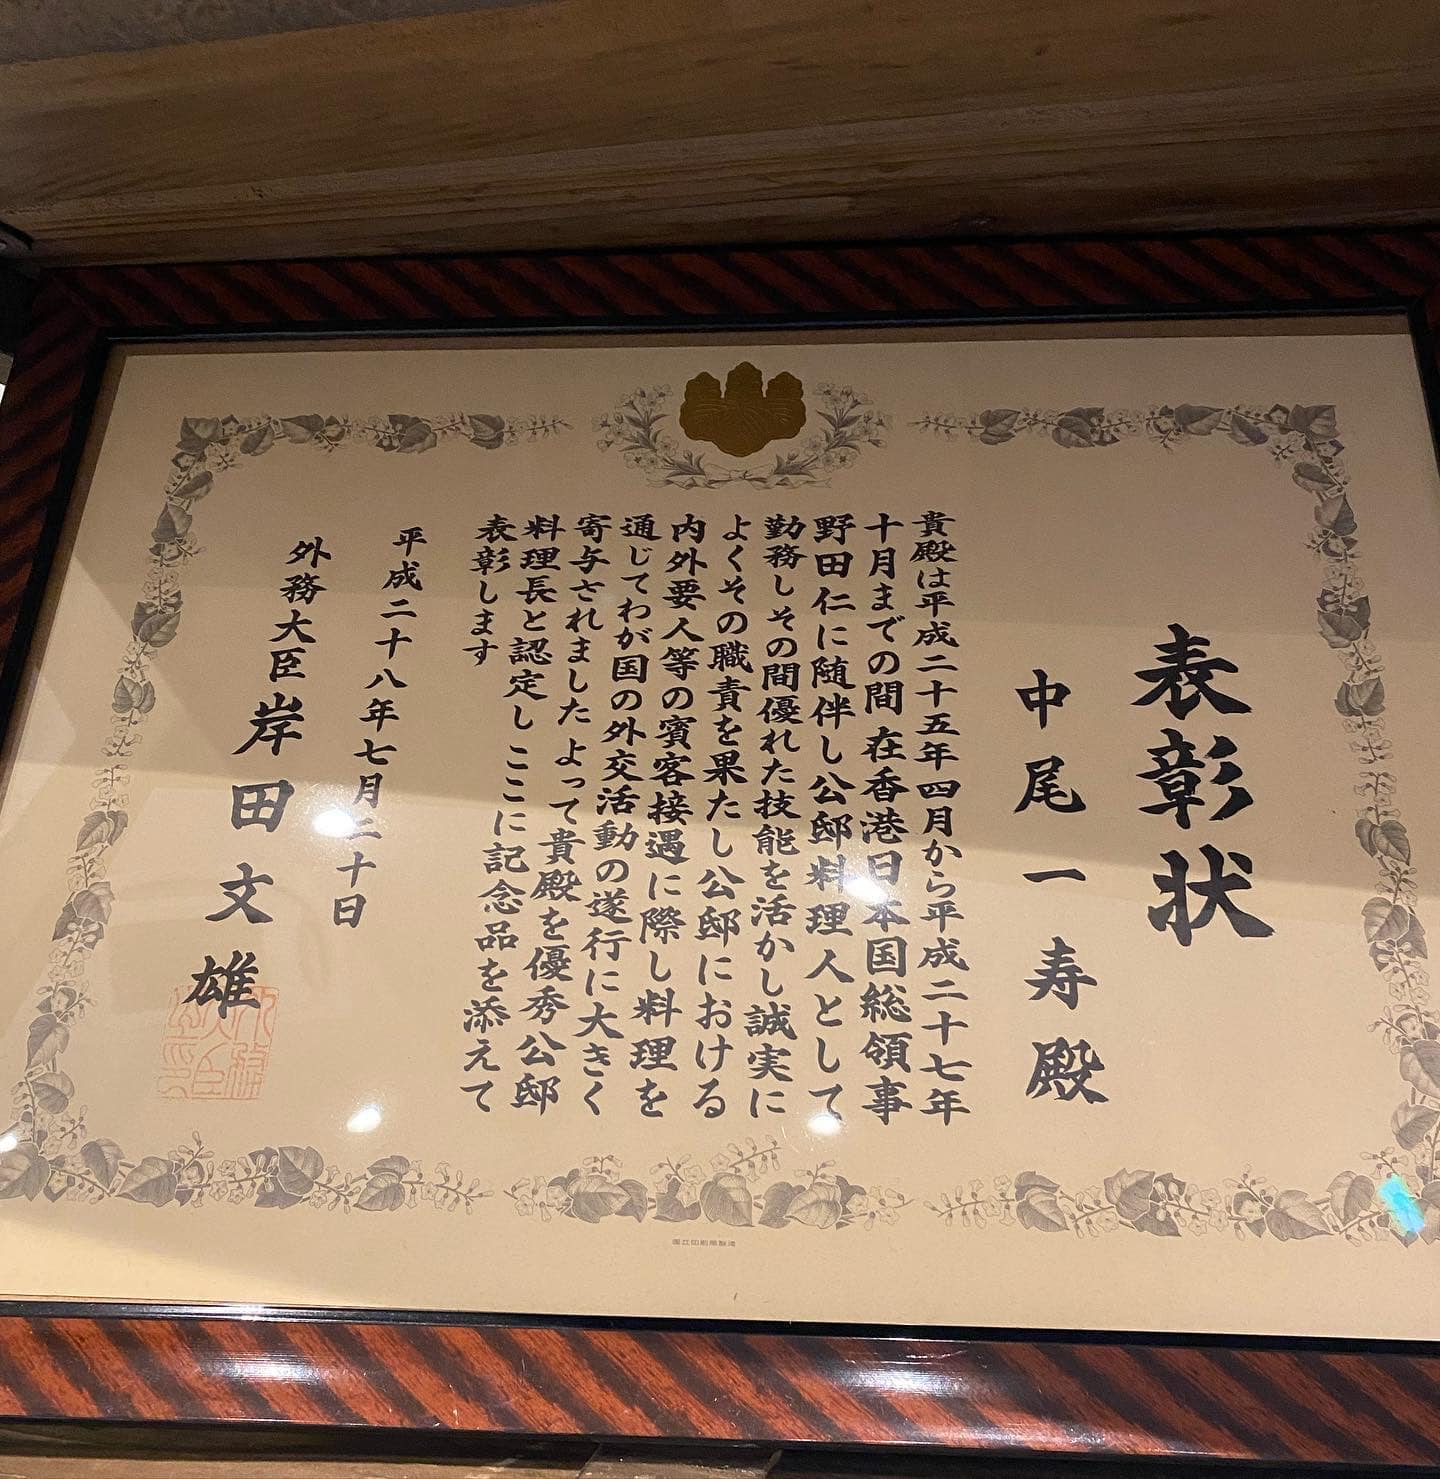 表彰状
中尾一寿殿
貴殿は平成二十五年四月から平成二十七年
十月までの間在香港日本国総領事
野田仁に随伴し公邸料理人として
勤務しその間優れた技能を活かし誠実に
よくその職責を果たし公邸における
内外要人等の賓客接遇に際し料理を
通じてわが国の外交活動の遂行に大きく
寄与されましたよって貴殿を優秀公邸
料理長と認定しここに記念品を添えて
表彰します
平成二十八年七月二十日
外務大臣岸田文雄
国立印刷局製造